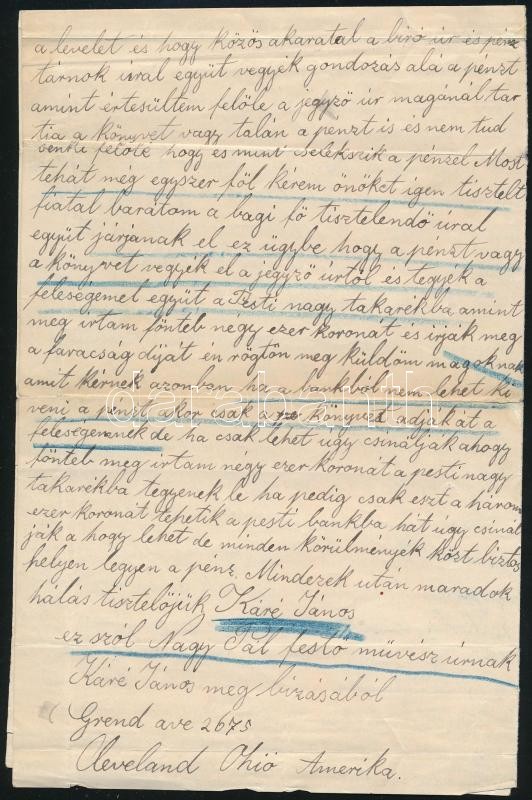 a levelet és hogy közös akaratal a biró úr és pénz
tárnok úral együt vegyék gondozás alá a pénzt
amint értesültem felőle a jegyző úr magánál tar
tia a könyvet vagy talán a penzt is és nem tud
senki felőle hogy és mint cselekszik a pénzel Most
tehát meg egyszer föl kérem önöket igen tisztelt
fiatal baratom a bagi fő tisztelendő úral
együt járjanak el ez ügybe hogy a pénzt vagy
a könyvet vegyék el a jegyző úrtól és tegyék a
feleségemel együt a Pesti nagy takarékba amint
meg irtam fönteb négy ezer koronát és irják meg
a faracság díját én rögtön meg küldöm magoknak
amit kérnek azonban ha a bankból nem lehet ki
veni a pénzt akor csak a könyvet adják át a
feleségemnek de ha csak lehet ugy csinálják ahogy
fönteb meg irtam négy ezer koronát a pesti nagy
takarékba tegyenek le ha pedig csak eszt a három
ezer koronát tehetik a pesti bankba hát ugy csinál
ják a hogy lehet de minden körülmények közt biztos
helyen legyen a pénz. Mindezek után maradok
hálás tisztelőjük Káré János
ez szól Nagy Pál festő művész úrnak
Káré János meg bizásából
Grend ave 2675
Cleveland Ohió Amerika.
darabanth